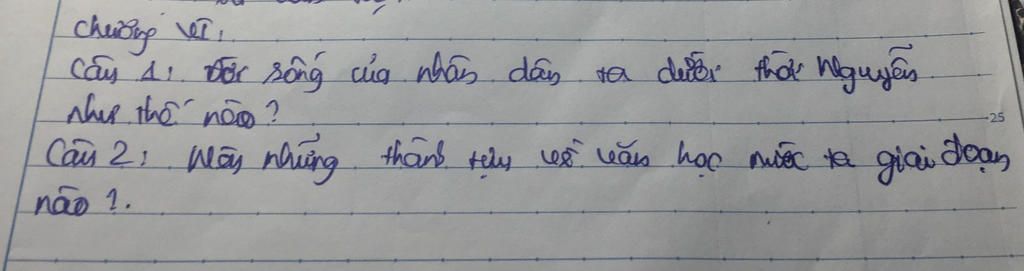 chương VI:
Câu 1: Đời sống của nhân dân ta dưới thời Nguyễn
như thế nào?
Câu 2: Nêu những thành tựu về văn học nước ta giai đoạn
này?.
25